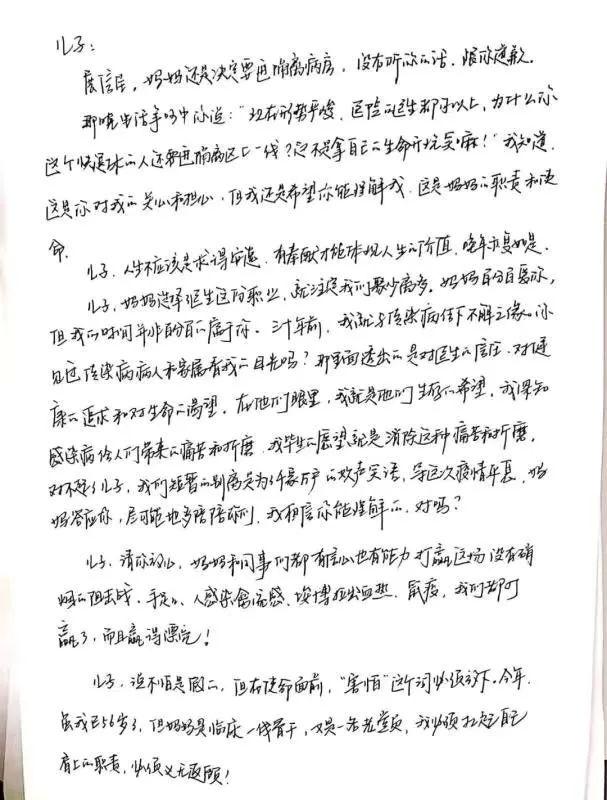 儿子：
展信佳，妈妈还是决定要进隔离病房，没有听你的话，跟你道歉。
那晚电话争吵中你说："现在形势严峻，医院的医生都可以上，为什么你
这个快退休的人还要进隔离区上一线？这不是拿自己的生命开玩笑嘛！"我知道，
这是你对我的关心和担心，但我还是希望你能理解我，这是妈妈的职责和使
命。
儿子，人生不应该是求得安逸，有奉献才能体现人生的价值，晚年亦复如是。
儿子，妈妈选择医生这份职业，就注定我们聚少离多。妈妈百分百爱你，
但我的时间并非百分百的属于你。三十年前，我就与传染病结下不解之缘。你
见过传染病病人和家属看我的目光吗？那里面透出的是对医生的信任、对健
康的追求和对生命的渴望，在他们眼里，我就是他们生存的希望，我深知
感染病给人们带来的痛苦和折磨，我毕生的愿望就是消除这种痛苦和折磨。
对不起，儿子，我们短暂的别离是为千家万户的欢声笑语，等这次疫情平息，妈
妈答应你，尽可能地多陪陪你们，我相信你能理解的，对吗？
儿子，请你放心，妈妈和同事们都有信心也有能力打赢这场没有硝
烟的阻击战。手足口、人感染禽流感、埃博拉出血热、鼠疫，我们都可
赢了，而且赢得漂亮！
儿子，说不怕是假的，但在使命面前，"害怕"这个词必须放下。今年
虽我已56岁了，但妈妈是临床一线骨干，又是一名老党员，我必须扛起自己
肩上的职责，必须义无返顾！